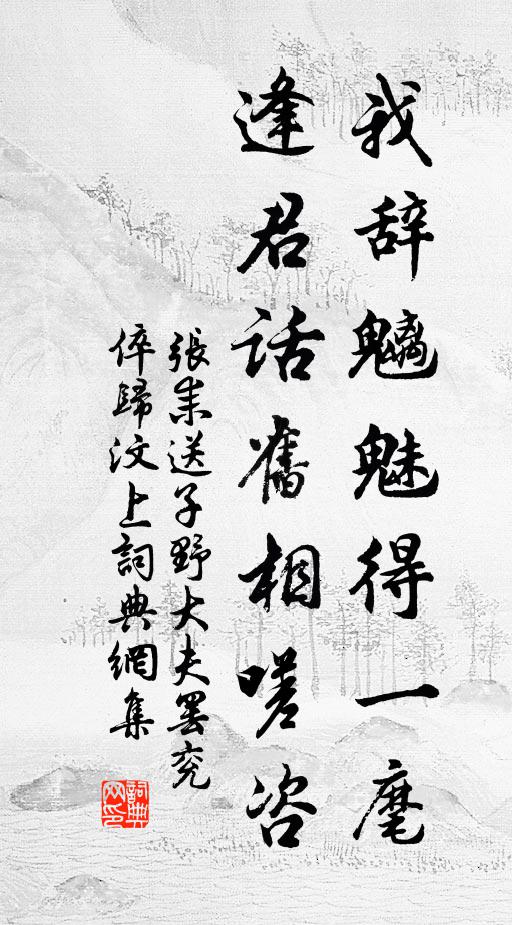 我辞魑魅得一麾
逢君話舊相嗟咨
張耒送子野大夫罢兖
倅歸汶上詞典網集
詞典网印